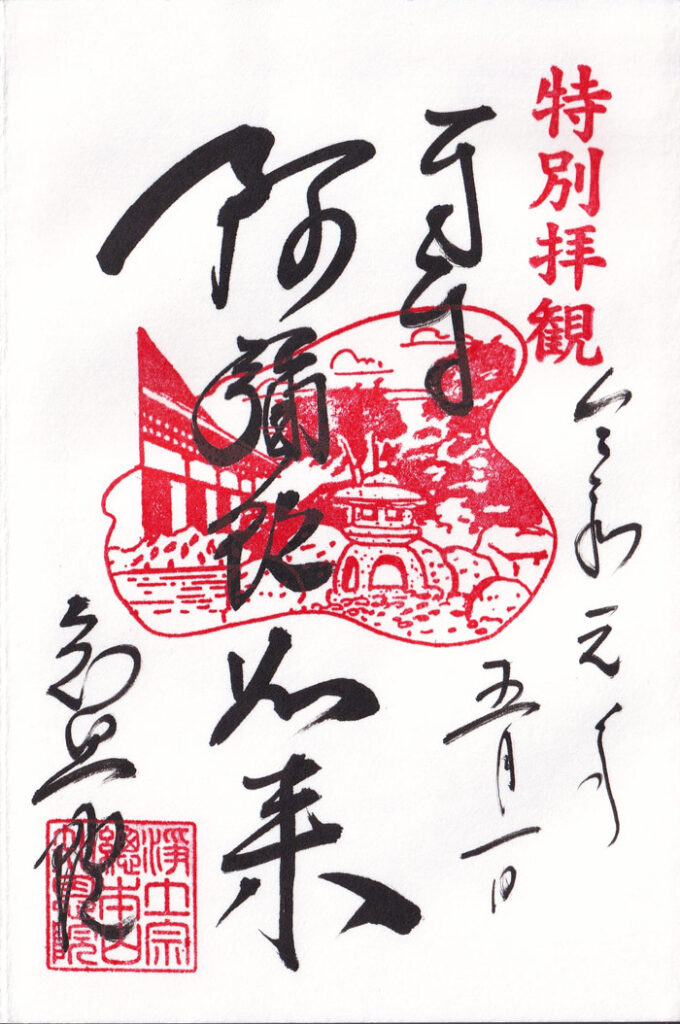 特別拝観
令和元年
五月一日
阿彌陀如来
知恩院
淨土宗
總本山
知恩院